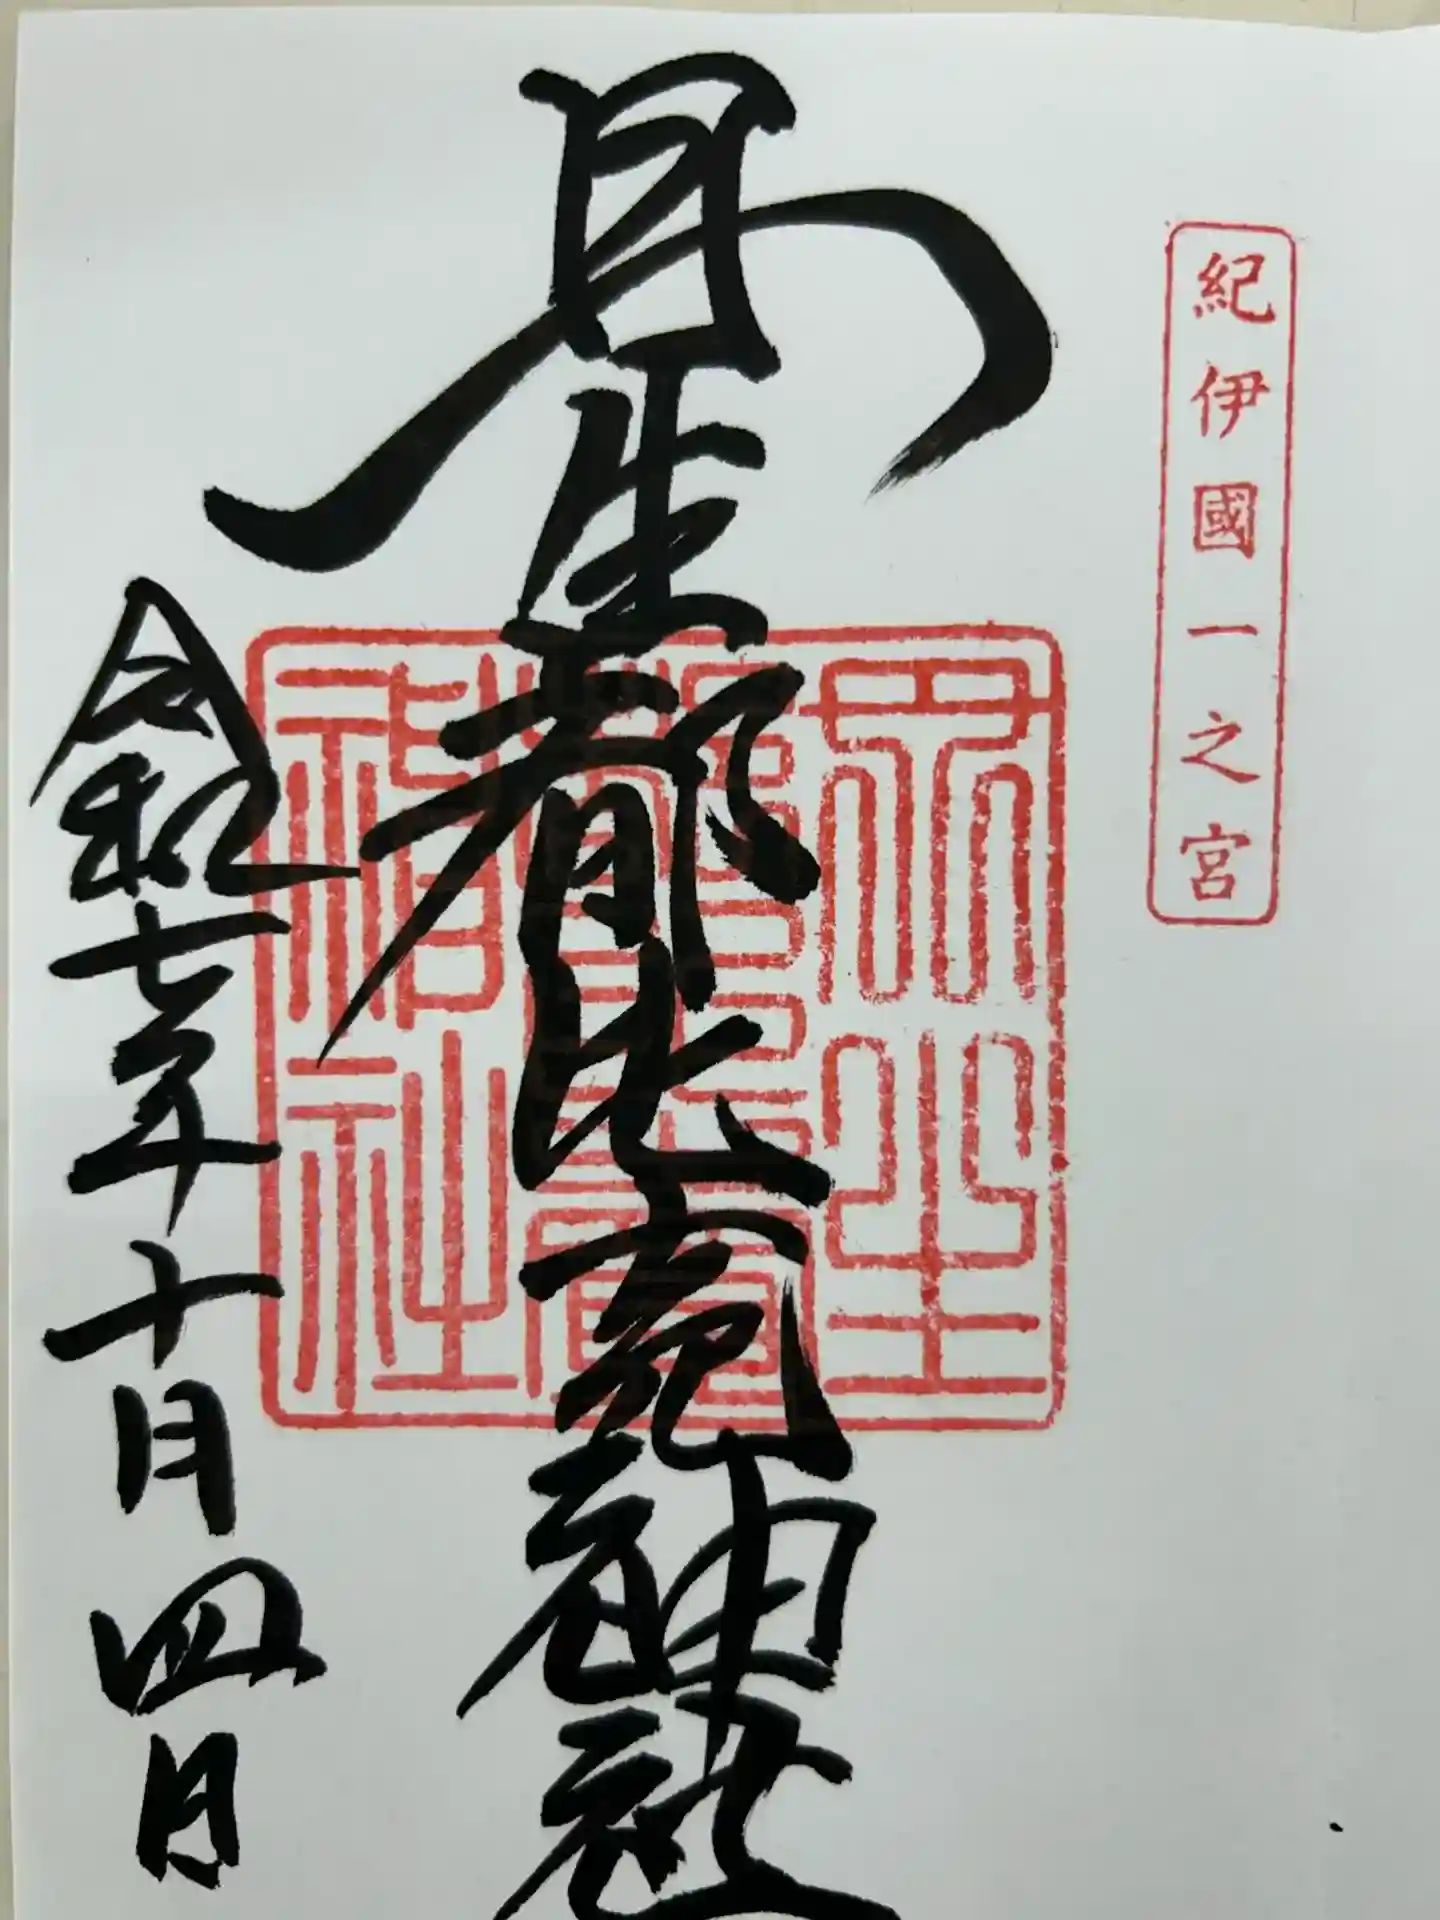 紀伊國一之宮
丹生都比売神社
丹生都比賣神社
令和七年十月四日